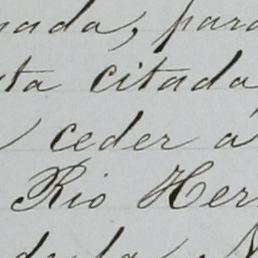 nada, para
sta citada
ceder a
Rio Her
de la